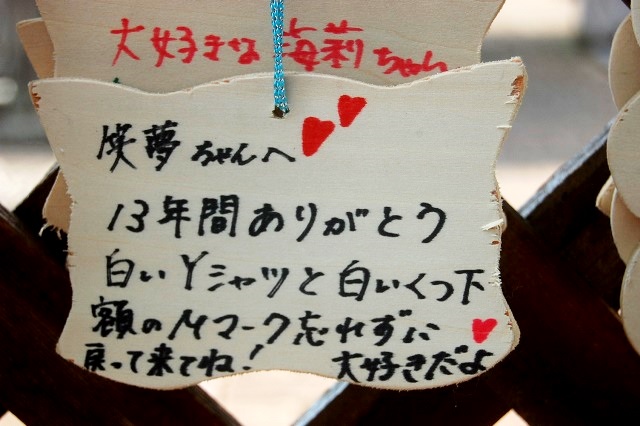 大好きな海莉ちゃん
笑夢ちゃんへ
13年間ありがとう
白いYシャツと白いくつ下
額のMマーク忘れずに
戻って来てね! 大好きだよ